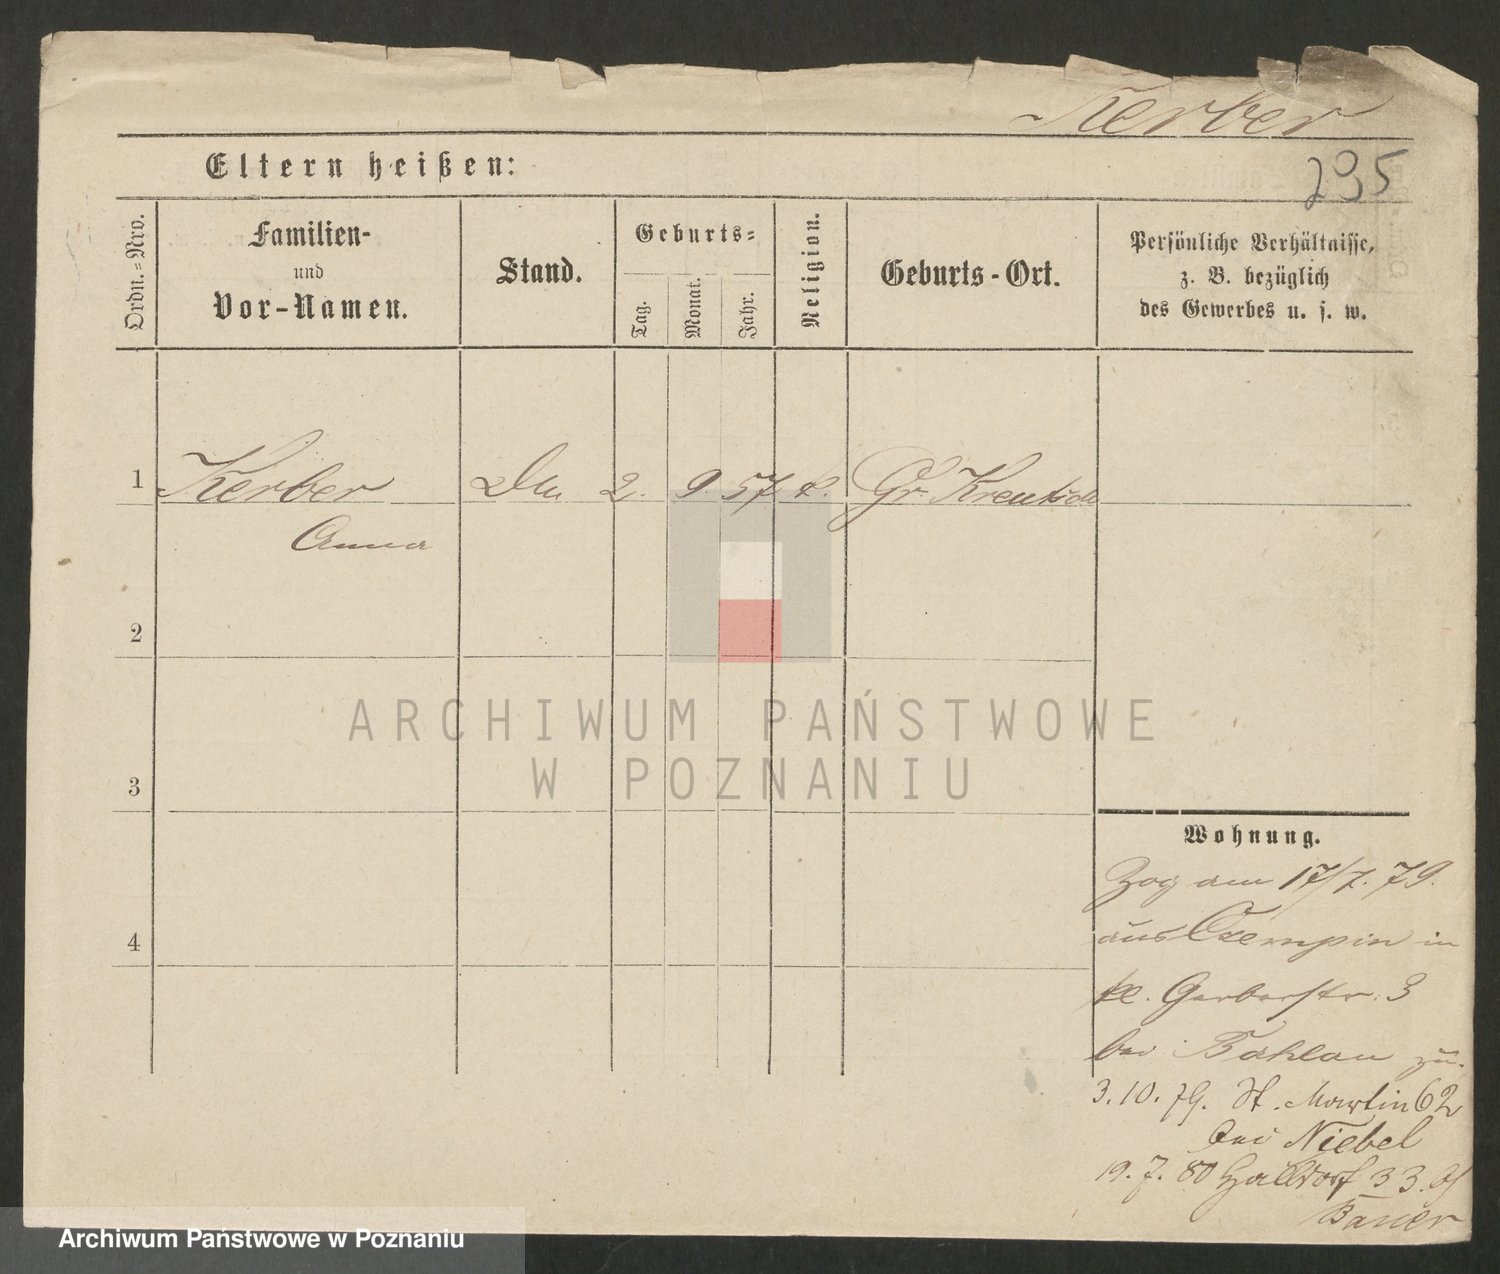 Kerber
295
Eltern heißen:
Ordn.=Nro.
Familien-
und
Vor-Namen.
Stand.
Geburts=
Tag.
Monat.
Jahr.
Religion.
Geburts-Ort.
Persönliche Verhältnisse,
z. B. bezüglich
des Gewerbes u. s. w.
1 Kerber 2. 9. 57 Gr. Kreutsch
Anna
2
3
4
Wohnung.
Zog am 17/7. 79.
aus Czempin in
kl. Gerberstr. 3
bei Bahlau zu.
3.10.79. St. Martin 62
bei Niebel
19. 7. 80 Halldorf 33.
Bauer
ARCHIWUM PAŃSTWOWE
W POZNANIU
Archiwum Państwowe w Poznaniu